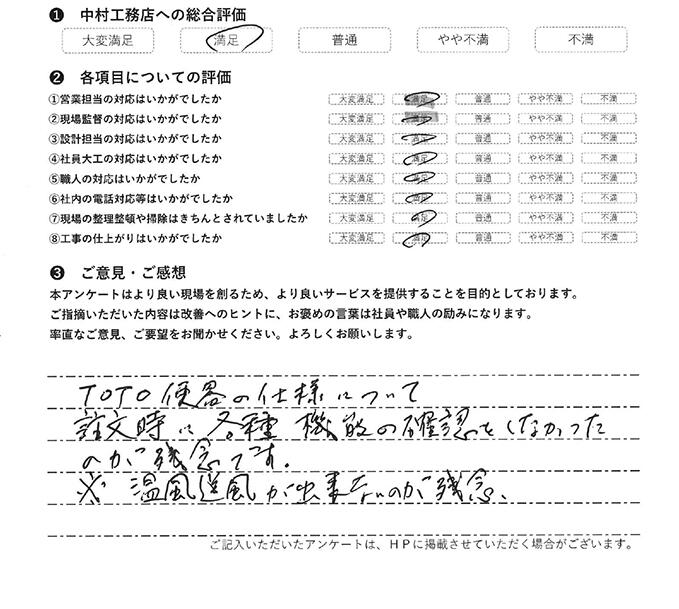 ❶ 中村工務店への総合評価
大変満足 満足 普通 やや不満 不満
❷ 各項目についての評価
①営業担当の対応はいかがでしたか 大変満足 満足 普通 やや不満 不満
②現場監督の対応はいかがでしたか 大変満足 満足 普通 やや不満 不満
③設計担当の対応はいかがでしたか 大変満足 満足 普通 やや不満 不満
④社員大工の対応はいかがでしたか 大変満足 満足 普通 やや不満 不満
⑤職人の対応はいかがでしたか 大変満足 満足 普通 やや不満 不満
⑥社内の電話対応等はいかがでしたか 大変満足 満足 普通 やや不満 不満
⑦現場の整理整頓や掃除はきちんとされていましたか 大変満足 満足 普通 やや不満 不満
⑧工事の仕上がりはいかがでしたか 大変満足 満足 普通 やや不満 不満
❸ ご意見・ご感想
本アンケートはより良い現場を創るため、より良いサービスを提供することを目的としております。
ご指摘いただいた内容は改善へのヒントに、お褒めの言葉は社員や職人の励みになります。
率直なご意見、ご要望をお聞かせください。よろしくお願いします。
TOTO便器の仕様について
註文時に各種機能の確認をしなかった
のが残念です.
※ 温風送風が出来ないのが残念、
ご記入いただいたアンケートは、HPに掲載させていただく場合がございます。